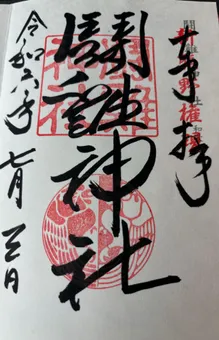 奉拝
闘雞神社
闘雞神社
令和六年七月三日